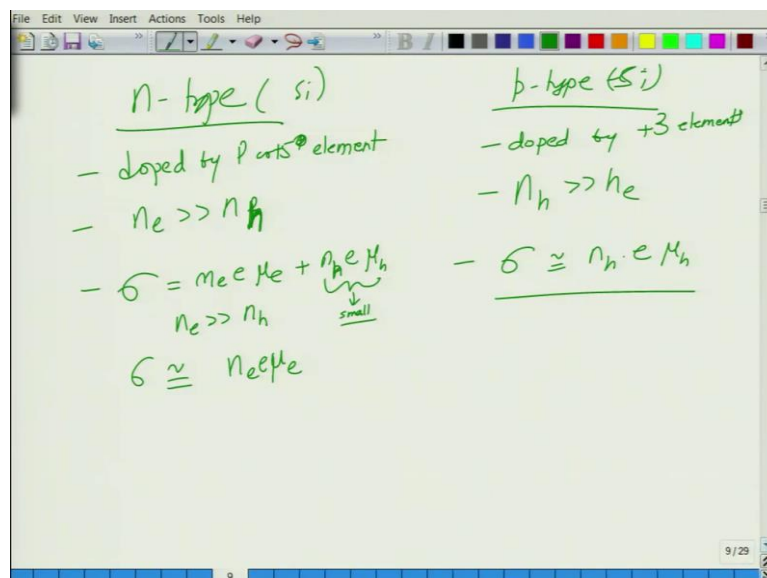 File Edit View Insert Actions Tools Help
n-type ( Si)
- doped by P or +5 element
- ne >> nh
- σ = ne e μe + nh e μh
ne >> nh
small
σ ≅ ne e μe
p-type (Si)
- doped by +3 element
- nh >> he
- σ ≅ nh. e μh
9/29
9